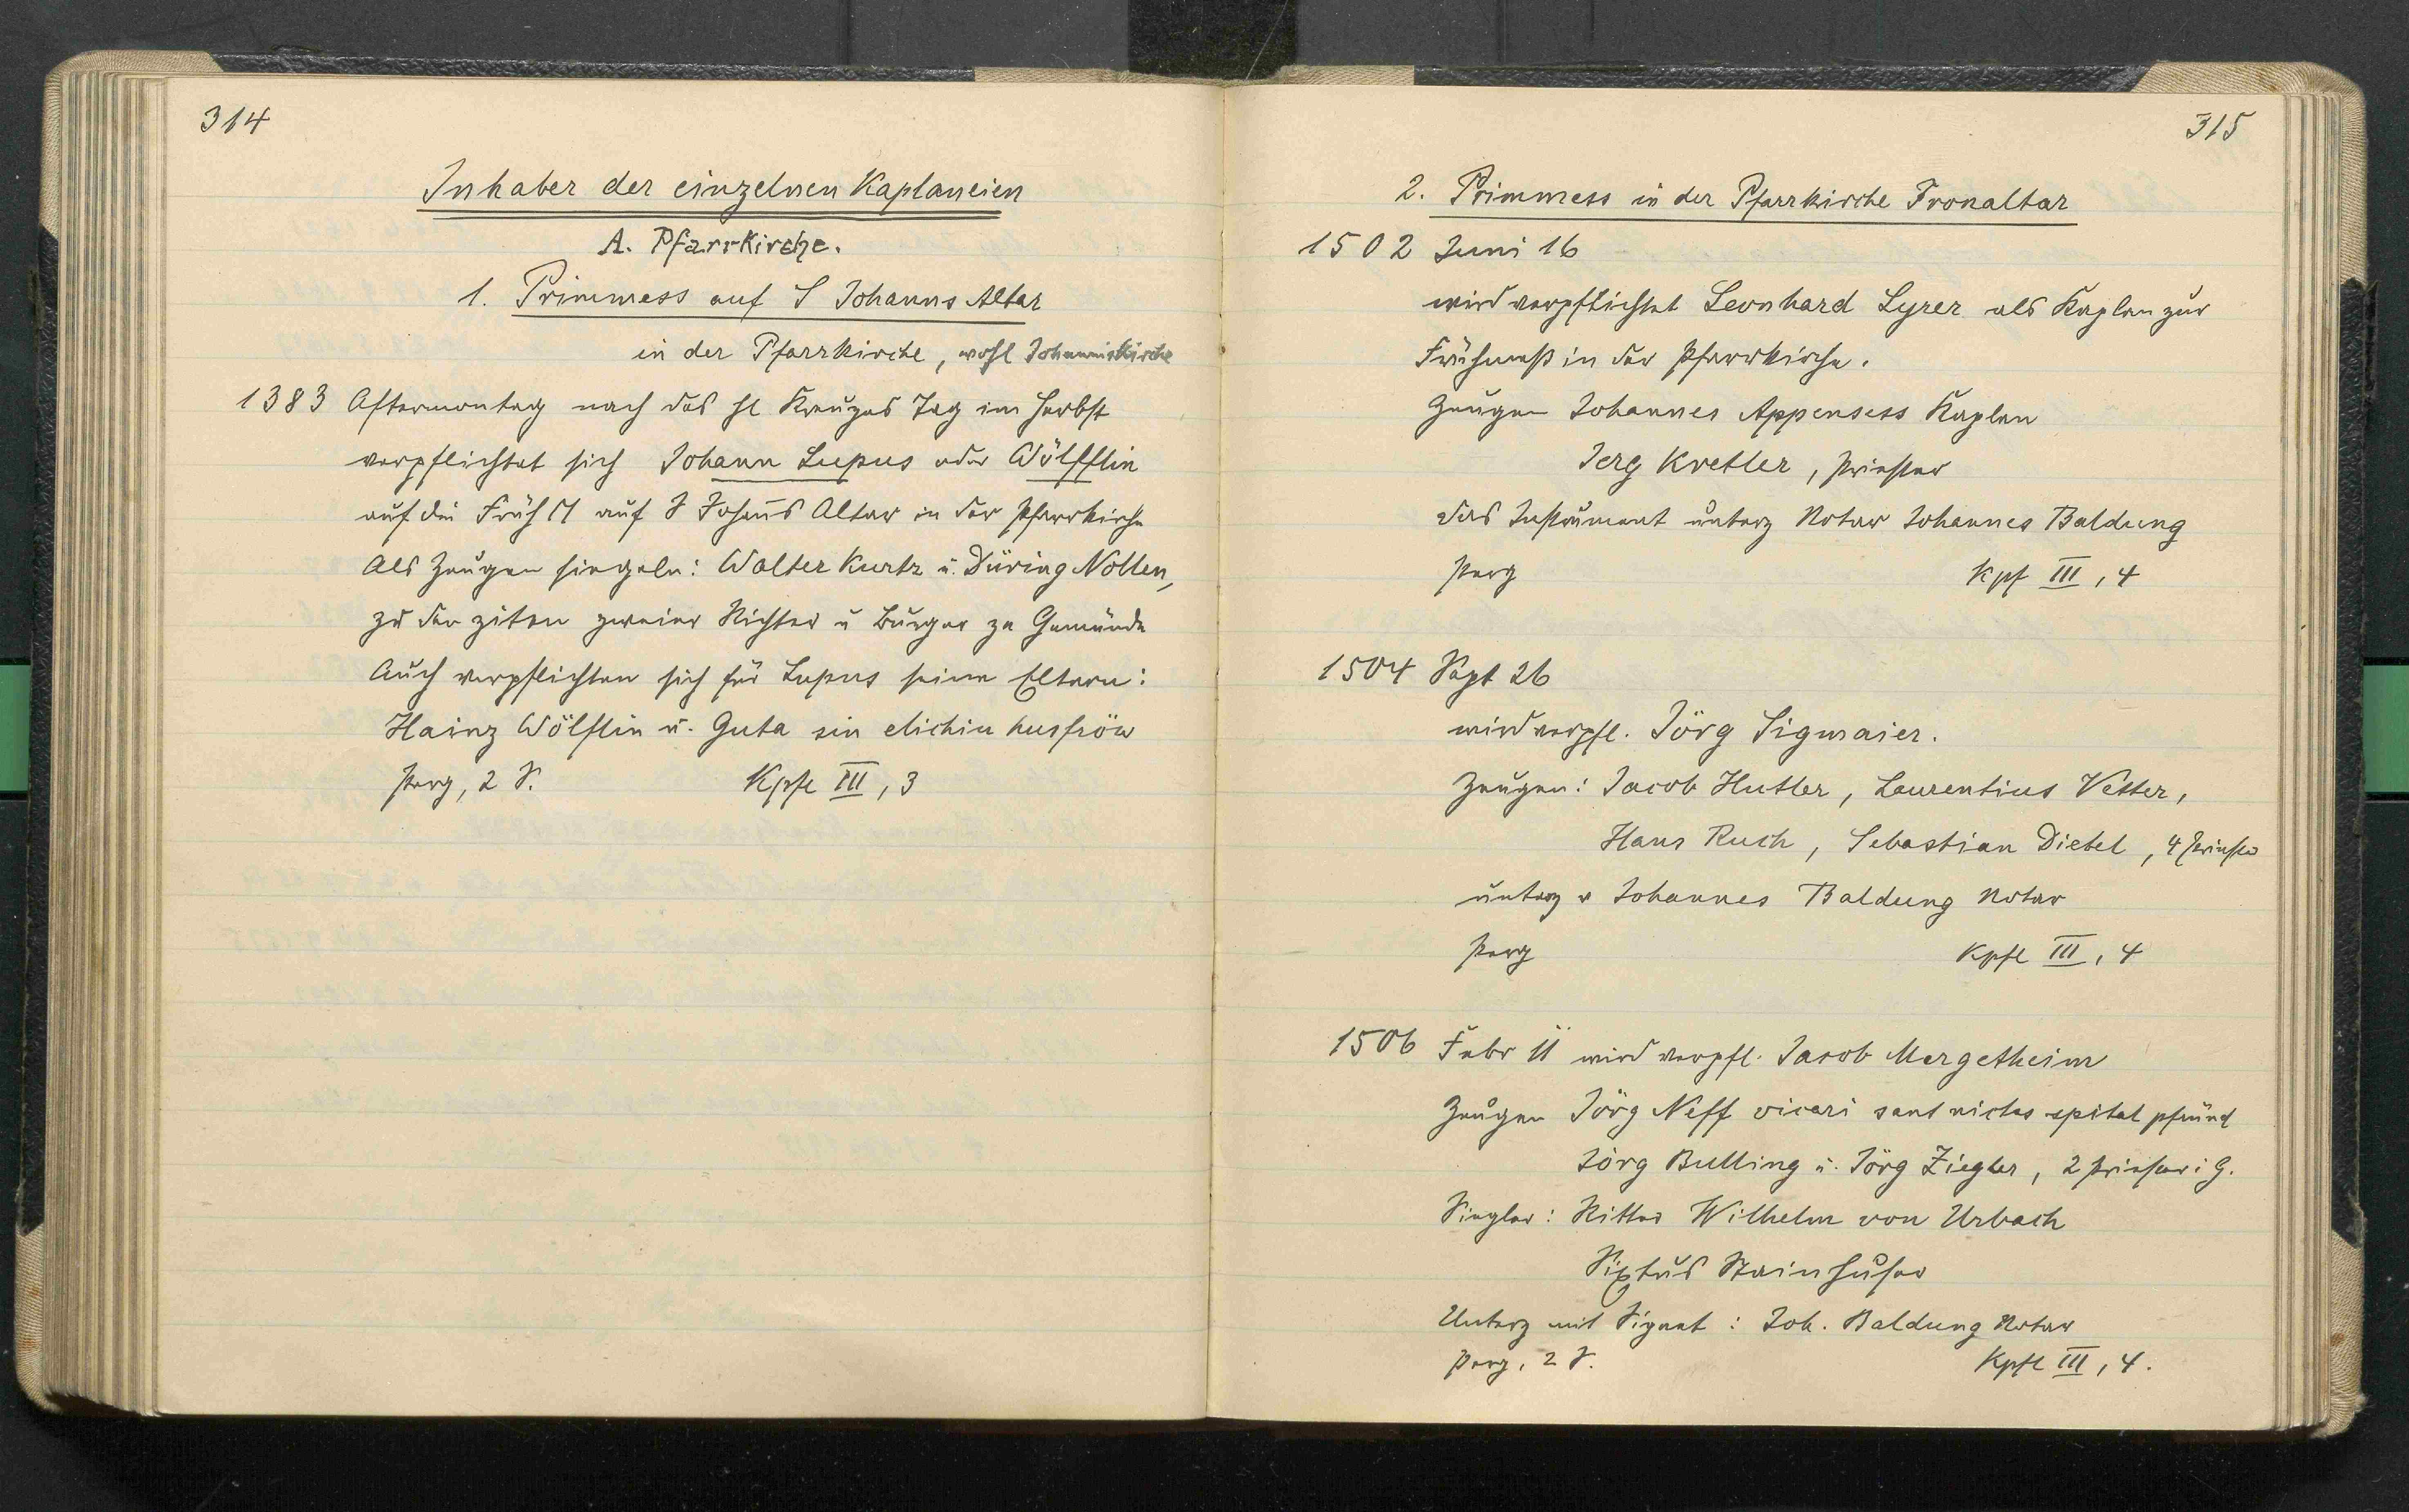 314
Inhaber der einzelnen Kaplaneien
A. Pfarrkirche.
1. Primmess auf S Johanns Altar
in der Pfarrkirche, wohl Johanniskirche
1383 Aftermontag nach des hl Kreuzes Tag im Herbst
verpflichtet sich Johann Lupus oder Wölfflin
auf die Früh M auf S Johans Altar in der Pfarrkirche
Als Zeugen siegeln: Walter Kurtz u. Düring Nollen,
zu den ziten zweier Richter u Burger ze Gemünde
Auch verpflichten sich für Lupus seine Eltern:
Hainz Wölflin u. Guta sin elichiu husfröw
Perg, 2 S. Kpfl III, 3
315
2. Primmess in der Pfarrkirche Fronaltar
1502 Juni 16
wird verpflichtet Leonhard Lyrer als Kaplan zur
Frühmeß in der Pfarrkirche.
Zeugen Johannes Appensess Kaplan
Jerg Kretler, Priester
das Instrument unterz Notar Johannes Baldung
Perg Kpf III, 4
1504 Sept 26
wird verpfl. Jörg Sigmaier.
Zeugen: Jacob Hutler, Laurentius Vetter,
Hans Ruch, Sebastian Dietel, 4 Priester
unterz v Johannes Baldung Notar
Perg Kpfl III, 4
1506 Febr 11 wird verpfl. Jacob Mergetheim
Zeugen Jörg Neff vicari sant niclas spital pfründ
Jörg Bulling u. Jörg Ziegler, 2 Priester i G.
Siegler: Ritter Wilhelm von Urbach
Sixtus Stainhuser
Unterz mit Signet: Joh. Baldung Notar
Perg, 2 S. Kpfl III, 4.